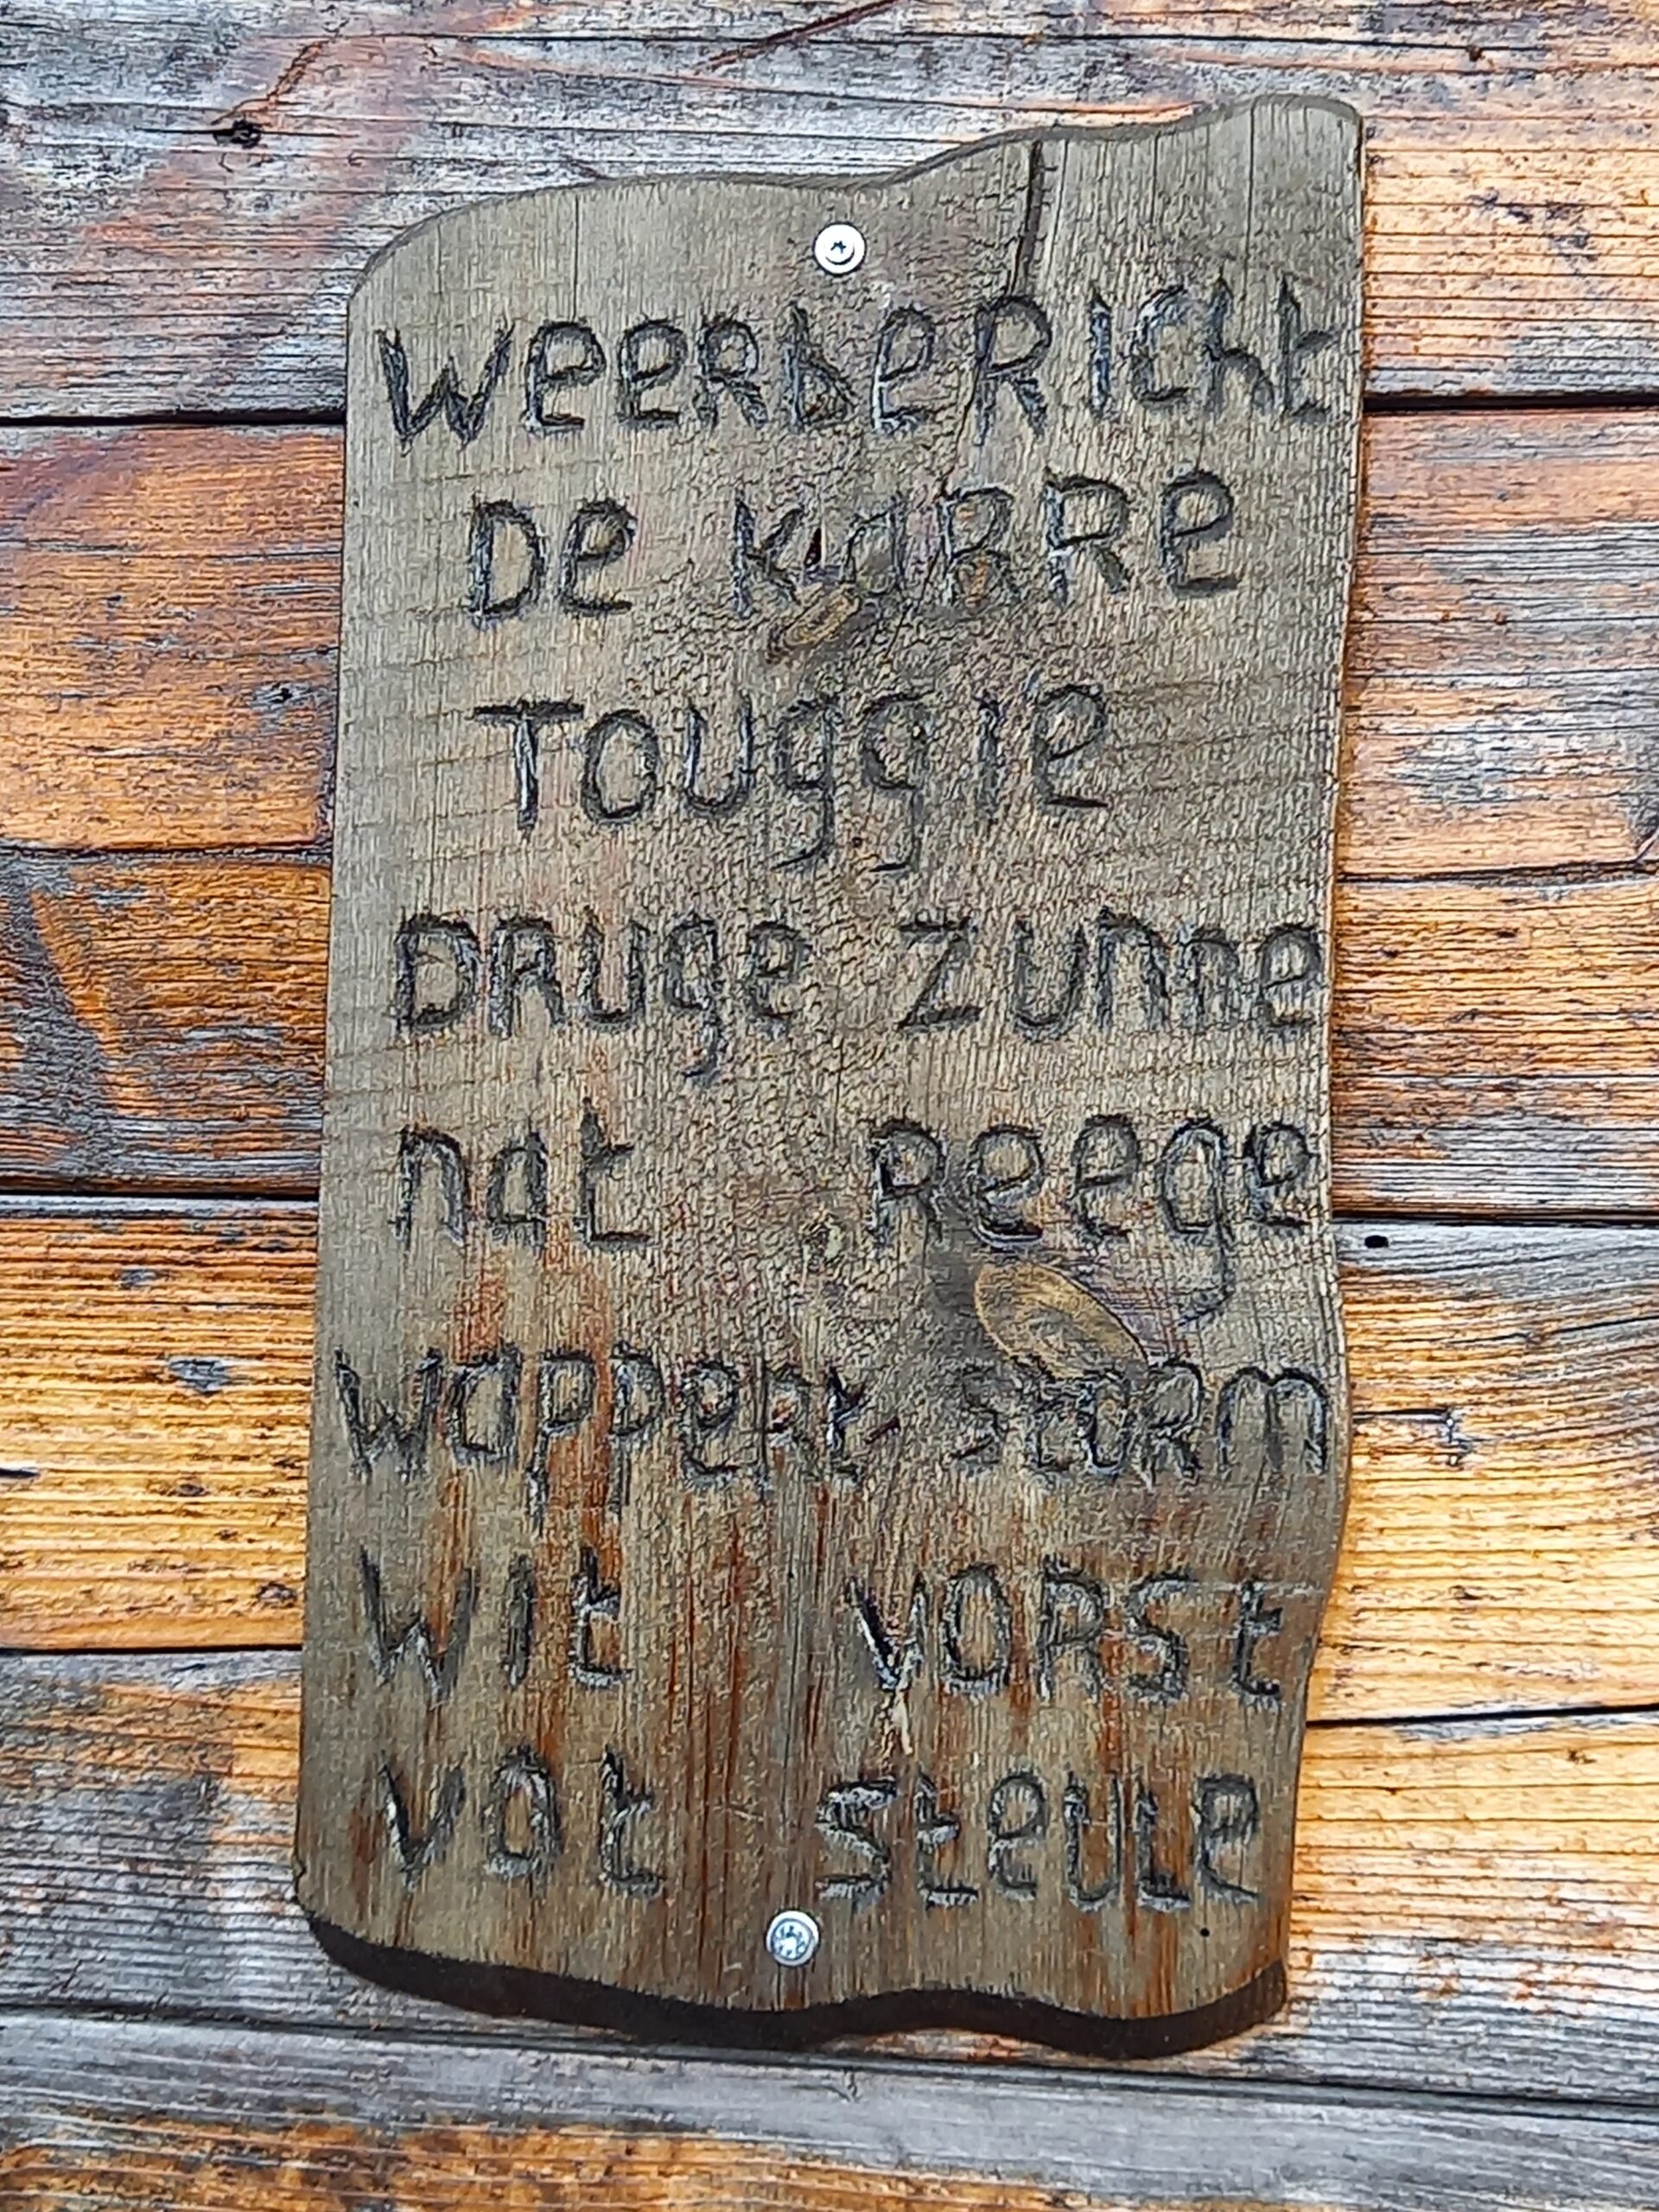 WeeRbeRIcht
De KaRRe
Touggie
DRuge Zunne
nat Reege
wappert stoRm
wit VORSt
Vot steule